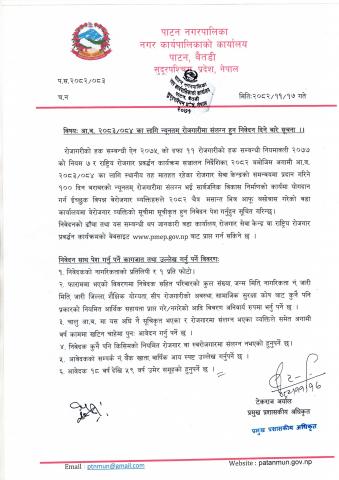 पाटन नगरपालिका
नगर कार्यपालिकाको कार्यालय
पाटन, बैतडी
सुदूरपश्चिम प्रदेश, नेपाल
प.स.२०८२/०८३
च.न
मितिः२०८२/११/१७ गते
विषयः आ.ब. २०८३/०८४ का लागि न्यूनतम रोजगारीमा संलग्न हुन निवेदन दिने बारे सूचना ।।
रोजगारीको हक सम्बन्धी ऐन २०७५ को दफा ११ रोजगारीको हक सम्बन्धी नियमावली २०७७
को नियम ७ र राष्ट्रिय रोजगार प्रबर्द्धन कार्यक्रम सञ्चालन निर्देशिका २०८२ बमोजिम आगामी आ.ब.
२०८३/०८४ का लागि स्थानीय तह मातहत रहेका रोजगार सेवा केन्द्रको समन्वयमा प्रदान गरिने
१०० दिन बराबरको न्यूनतम् रोजगारीमा संलग्न भई सार्वजनिक विकास निर्माणको कार्यमा योगदान
गर्न ईच्छुक विपन्न बेरोजगार व्यक्तिहरुले २०८२ चैत्र मसान्त भित्र आफु बसोबास गरेको वडा
कार्यालयमा बेरोजगार व्यक्तिको सूचीमा सूचीकृत हुन निवेदन पेश गर्नुहुन सूचित गरिन्छ।
निवेदनको ढाँचा तथा यस सम्बन्धी थप जानकारी वडा कार्यालय, रोजगार सेवा केन्द्र वा राष्ट्रिय रोजगार
प्रबर्द्धन कार्यक्रमको वेबसाइट www.pmep.gov.np बाट प्राप्त गर्न सकिने छ ।
निवेदन साथ पेश गर्नु पर्ने कागजात तथा उल्लेख गर्नु पर्ने विवरणः
१. निवेदकको नागरिकताको प्रतिलिपी र १ प्रति फोटो।
२. फाराममा भएको विवरणमा निवेदक सहित परिवारको कुल संख्या, जन्म मिति, नागरिकता नं, जारी
मिति, जारी जिल्ला शैक्षिक योग्यता, सीप रोजगारीको अवस्था, सामाजिक सुरक्षा कोष बाट कुनै पनि
प्रकारको नियमित आर्थिक सहायता प्राप्त गरे/नगरेको आदि विवरण अनिवार्य रुपमा भर्नु पर्ने छ ।
३. चालु आ.ब. मा यस अघि नै सूचिकृत भएका र रोजगारमा संलग्न भएका व्यक्तिले समेत आगामी
वर्ष काममा खटिन चाहेमा पुनः आवेदन गर्नु पर्ने छ ।
४. निवेदक कुनै पनि किसिमको नियमित रोजगार वा स्वरोजगारमा संलग्न नभएको हुनुपर्ने छ।
५. आवेदकको सम्पर्क नं, बैंक खाता, बार्षिक आय स्पष्ट उल्लेख गर्नुपर्ने छ ।
६. आवेदक १८ वर्ष देखि ५९ वर्ष उमेर समूहको हुनुपर्ने छ ।
टेकराज अर्याल
प्रमुख प्रशासकीय अधिकृत
प्रमुख प्रशासकीय अधिकृत
Email : ptnmun@gmail.com
Website : patanmun.gov.np